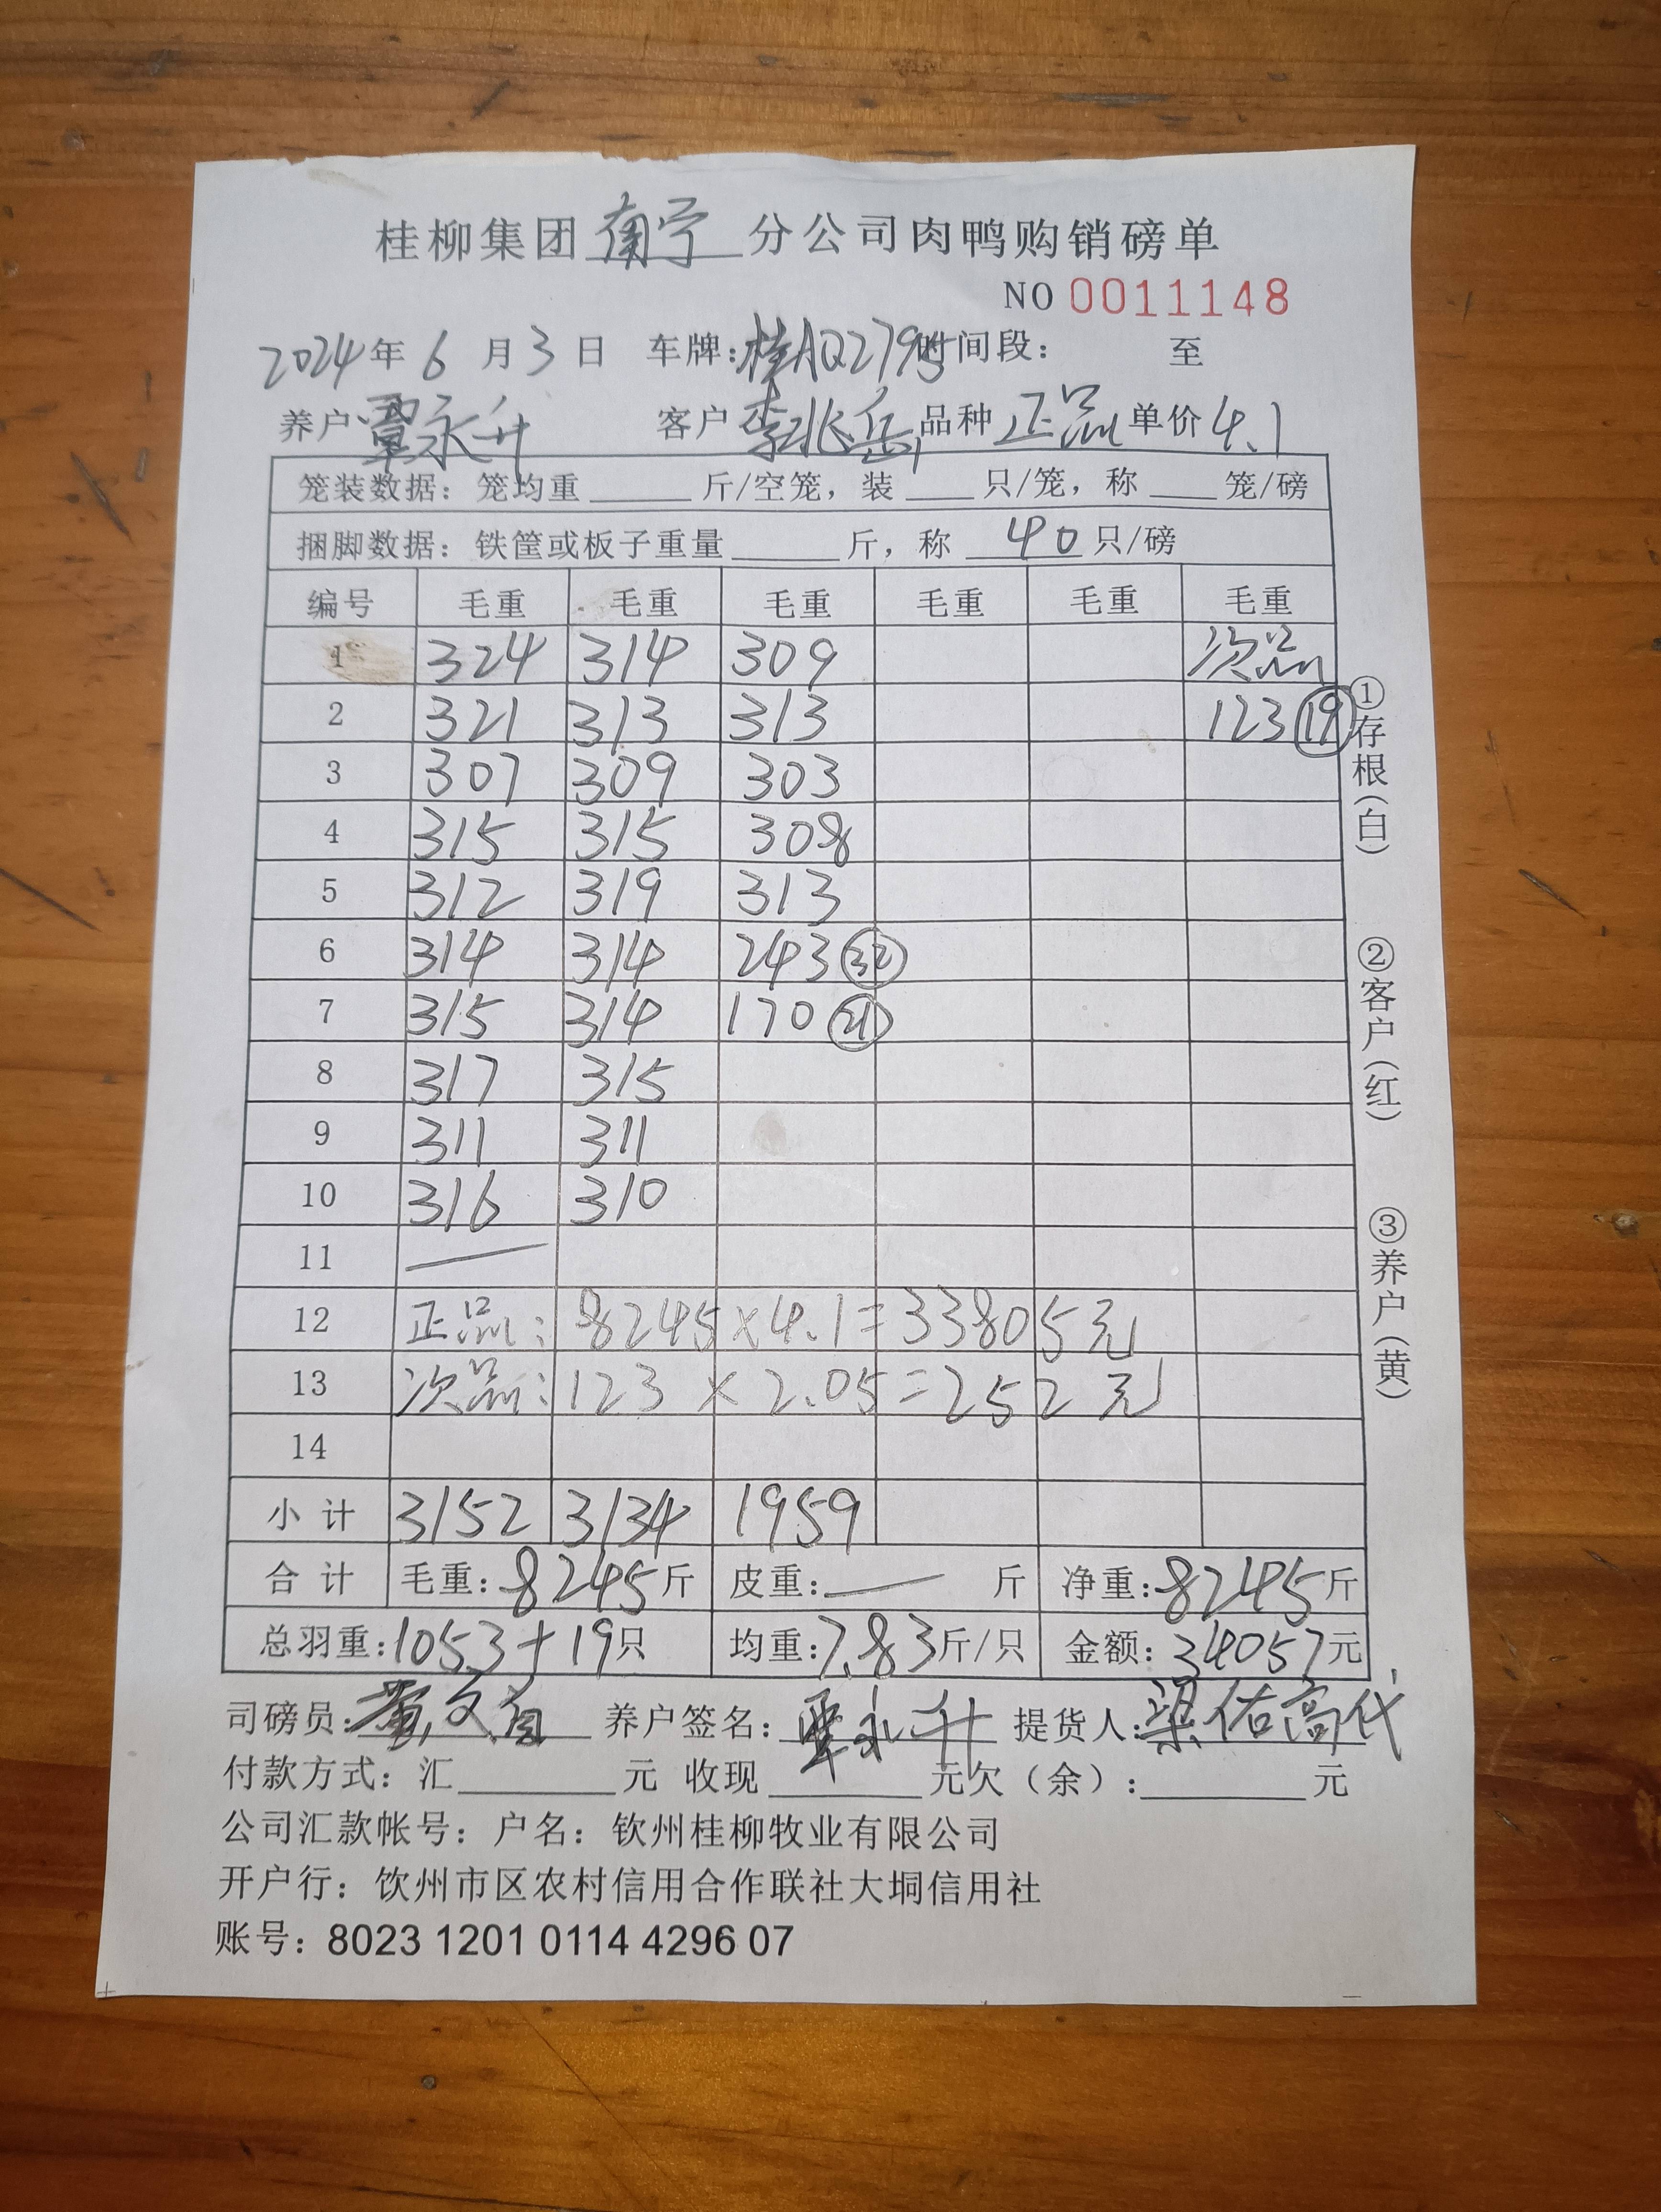 桂柳集团南宁分公司肉鸭购销磅单
NO 0011148
2024年6月3日 车牌:桂AQ2795时间段: 至
养户覃永升 客户李兆岳 品种正品 单价4.1
笼装数据: 笼均重 斤/空笼, 装 只/笼, 称 笼/磅
捆脚数据: 铁筐或板子重量 斤, 称 40 只/磅
编号 毛重 毛重 毛重 毛重 毛重 毛重
1 324 314 309 次品
2 321 313 313 123 ⑲
3 307 309 303
4 315 315 308
5 312 319 313
6 314 314 243 ㉜
7 315 314 170 ㉑
8 317 315
9 311 311
10 316 310
11 —
12 正品: 8245×4.1=33805元
13 次品: 123×2.05=252元
14
小计 3152 3134 1959
合计 毛重:8245斤 皮重:— 斤 净重:8245斤
总羽重:1053+19只 均重:7.83斤/只 金额:34057元
①存根(白)
②客户(红)
③养户(黄)
司磅员:黄文 养户签名:覃永升 提货人:梁佑高代
付款方式: 汇 元 收现 元欠(余): 元
公司汇款帐号: 户名: 钦州桂柳牧业有限公司
开户行: 饮州市区农村信用合作联社大垌信用社
账号: 8023 1201 0114 4296 07